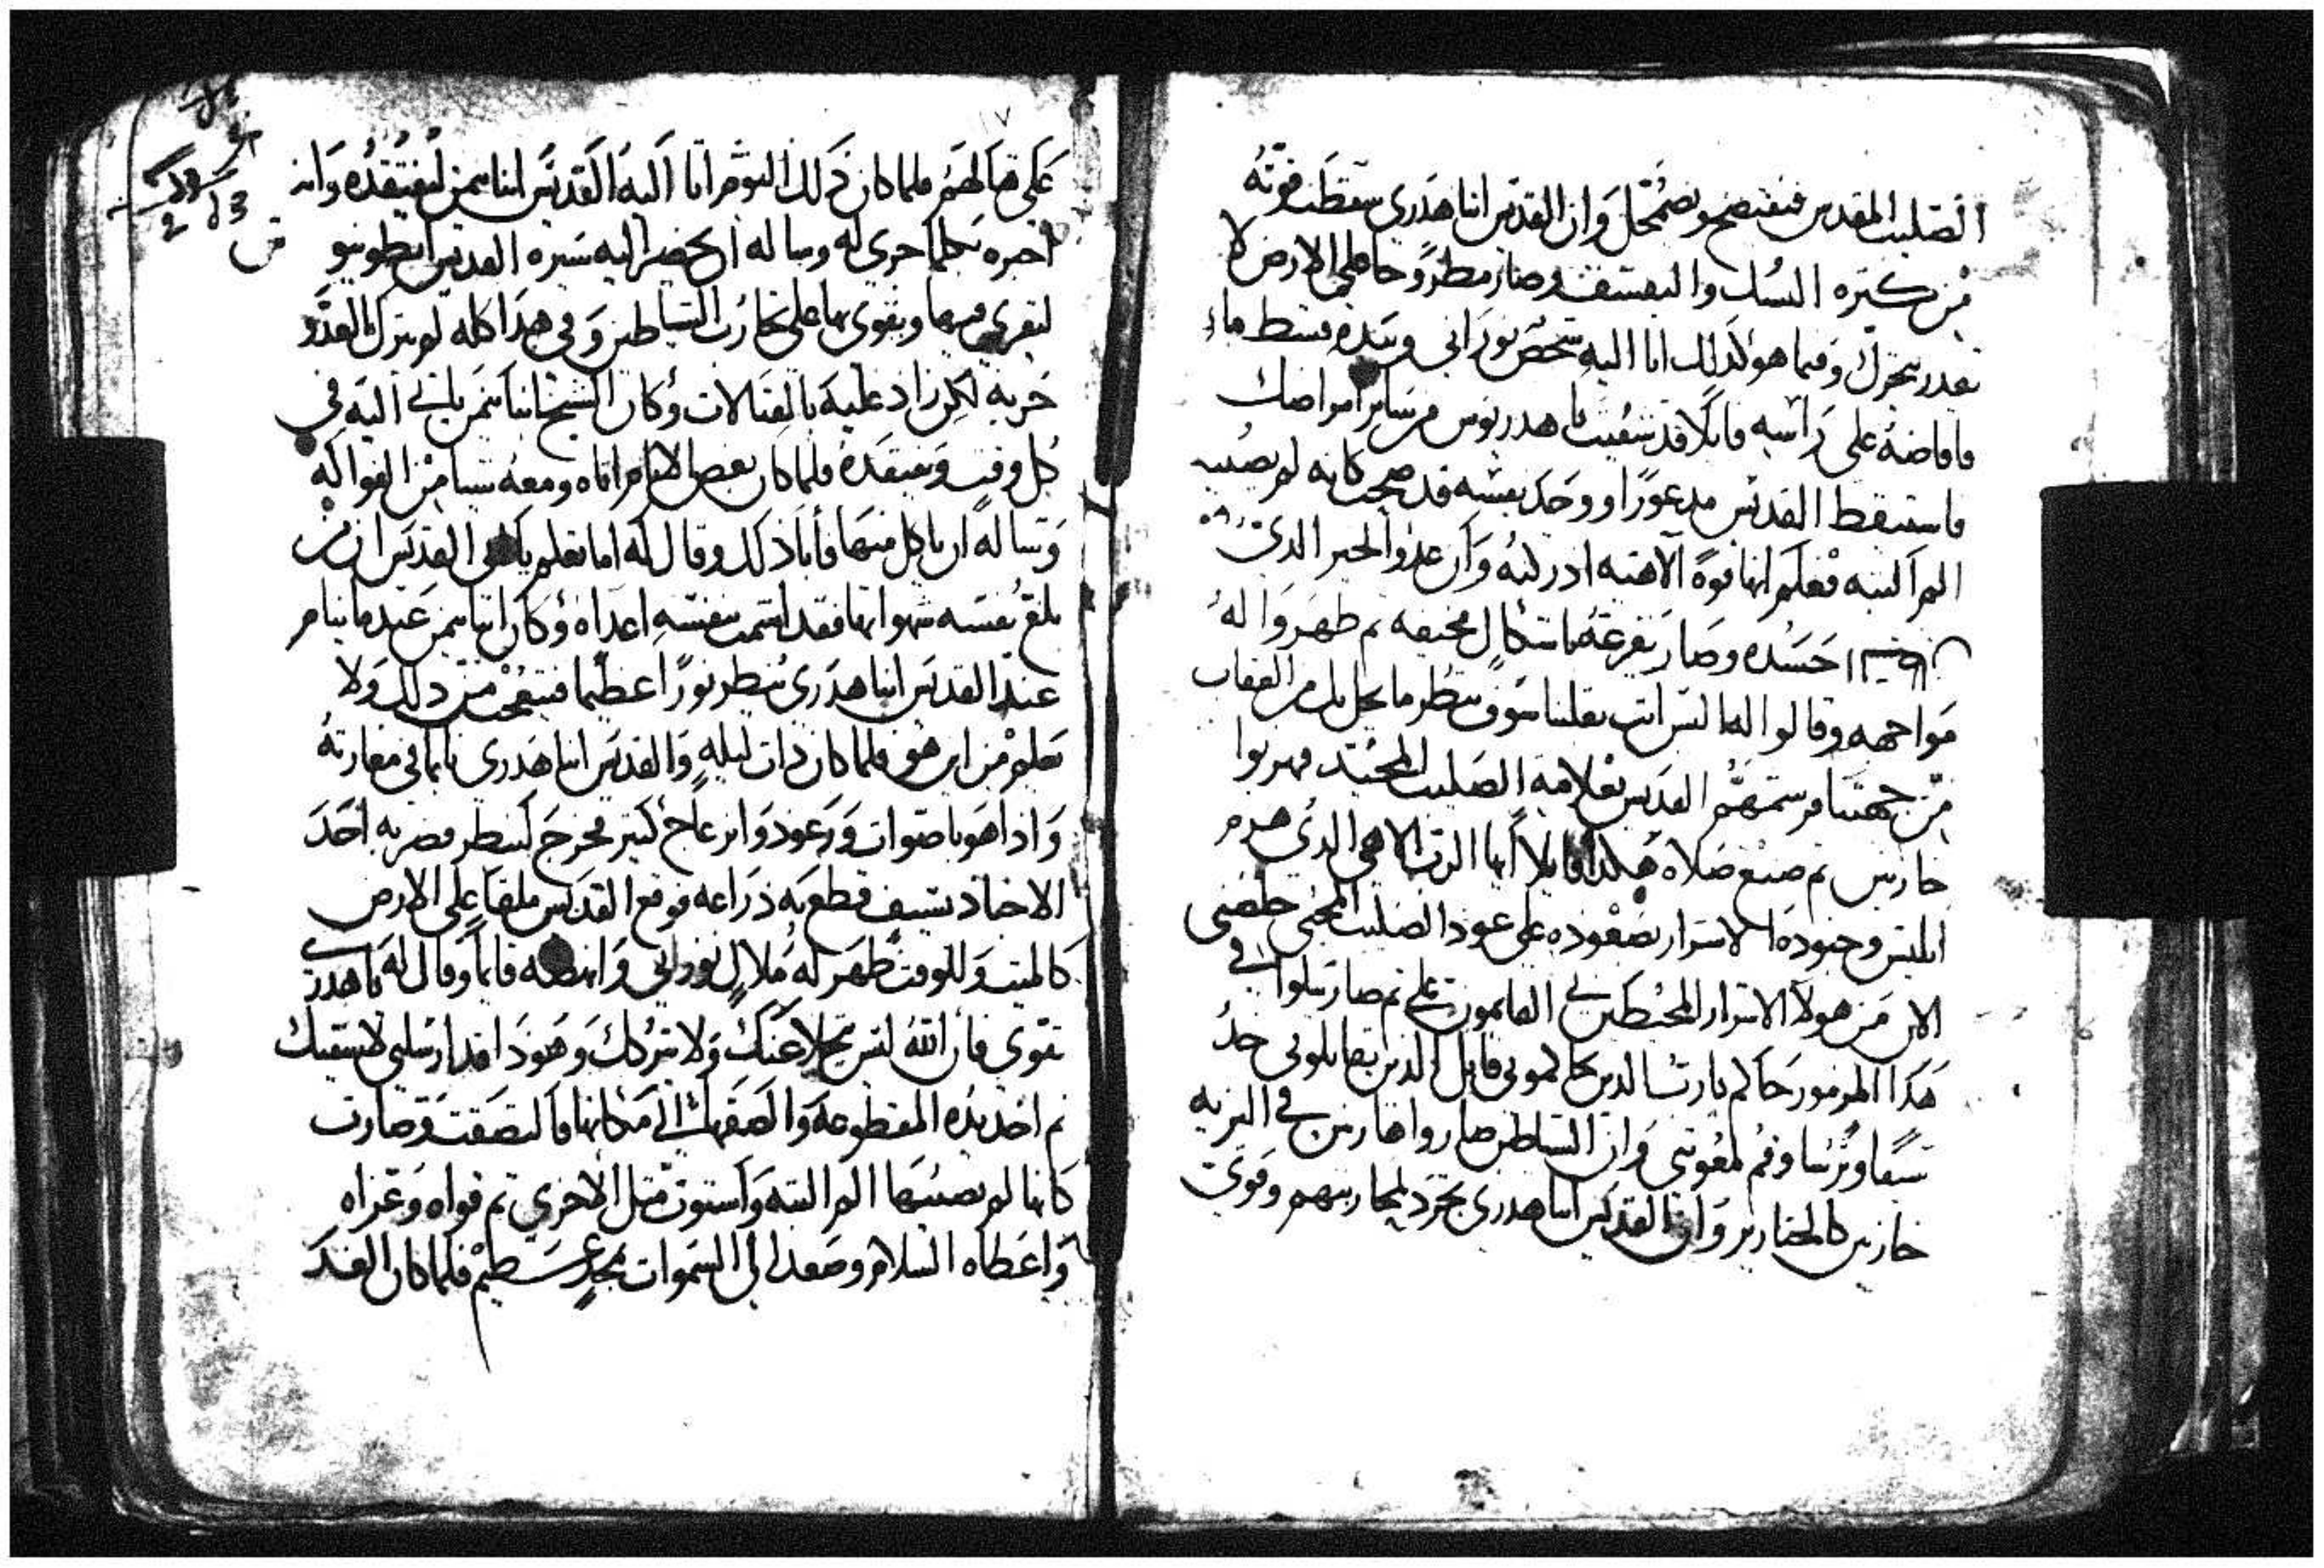 الصليب المقدس فيفتضح ويضمحل وان القديس انبا هدري سقطت قوته
من كثره النسك والتقشف وصار مطروحا على الارض لا
يقدر يتحرك وفيما هو كذلك اتا اليه شخص نوراني وبيده قسط ماء
فافاضه على راسه قايلا قد شفيت يا هدريوس من ساير امراضك
فاستيقظ القديس مدعورا ووجد نفسه قد صحت كانه لم يصيبه
الم البته فعلم انها قوة الاهيه ادركته وان عدو الخير الذي
حسده وصار يفزعه باشكال مخيفه ثم ظهروا له
مواجهه وقالوا له لس انت بعلنا سوف تنظر ما يحل بك من العقاب
من جهتنا فرسمهم القديس بعلامة الصليب المجيد فهربوا
خازيين ثم صنع صلاه هكذا قايلا ايها الرب الاهي الذي هدم
ابليس وجنوده الاشرار بصعوده على عود الصليب المحيي خلصني
الان من هولاء الاشرار المحيطين بي القايمون علي ثم صار يتلوا في
هذا المزمور حاكم يارب الذين يحاكموني قابل الذين يقاتلوني خذ
سيفا وترسا وقم لمعونتي وان الشياطين صاروا صارخين في البريه
خازيين كالخنازير وان القديس انبا هدري تجرد لمحاربتهم وقوي
على قتالهم فلما كان ذلك اليوم اتا اليه القديس انبا بمن ليفتقده وانه
اخبره بكلما جرى له وساله ان يحضر اليه سيره القديس انطونيو
ليقرى فيها ويقوى بها على محاربت الشياطين وفي هذا كله لم يترك العدو
حربه لكن زاد عليه بالقتالات وكان الشيخ انبا بمن ياتي اليه في
كل وقت ويفتقده فلما كان بعض الايام اتاه ومعه شيا من الفواكه
وساله ان ياكل منها فأبا ذلك وقال له اما تعلم يا ابي القديس ان من
بلغ نفسه شهواتها فقد اشمت بنفسه اعداه وكان انبا بمن عندما ينام
عند القديس انبا هدري ينظر نورا عظيما فيتعجب من ذلك ولا
يعلم من اين هو فلما كان ذات ليله والقديس انبا هدري نايما في مغارته
واذا هو باصوات ورعود وانزعاج كتير فخرج لينظر فضربه احد
الاجناد بسيف قطع يه ذراعه فوقع القديس ملقا على الارض
كالميت وللوقت ظهر له ملاك نوراني وانهضه قايما وقال له يا هدري
تقوى فان الله ليس يتخلا عنك ولا يتركك وهوذا قد ارسلني لاشفيك
ثم اخد يده المقطوعه والصقها الى مكانها فالتصقت وصارت
كانها لم يصيبها الم البته واستوت مثل الاخري ثم قواه وعزاه
واعطاه السلام وصعد الى السموات بمجد عظيم فلما كان الغد